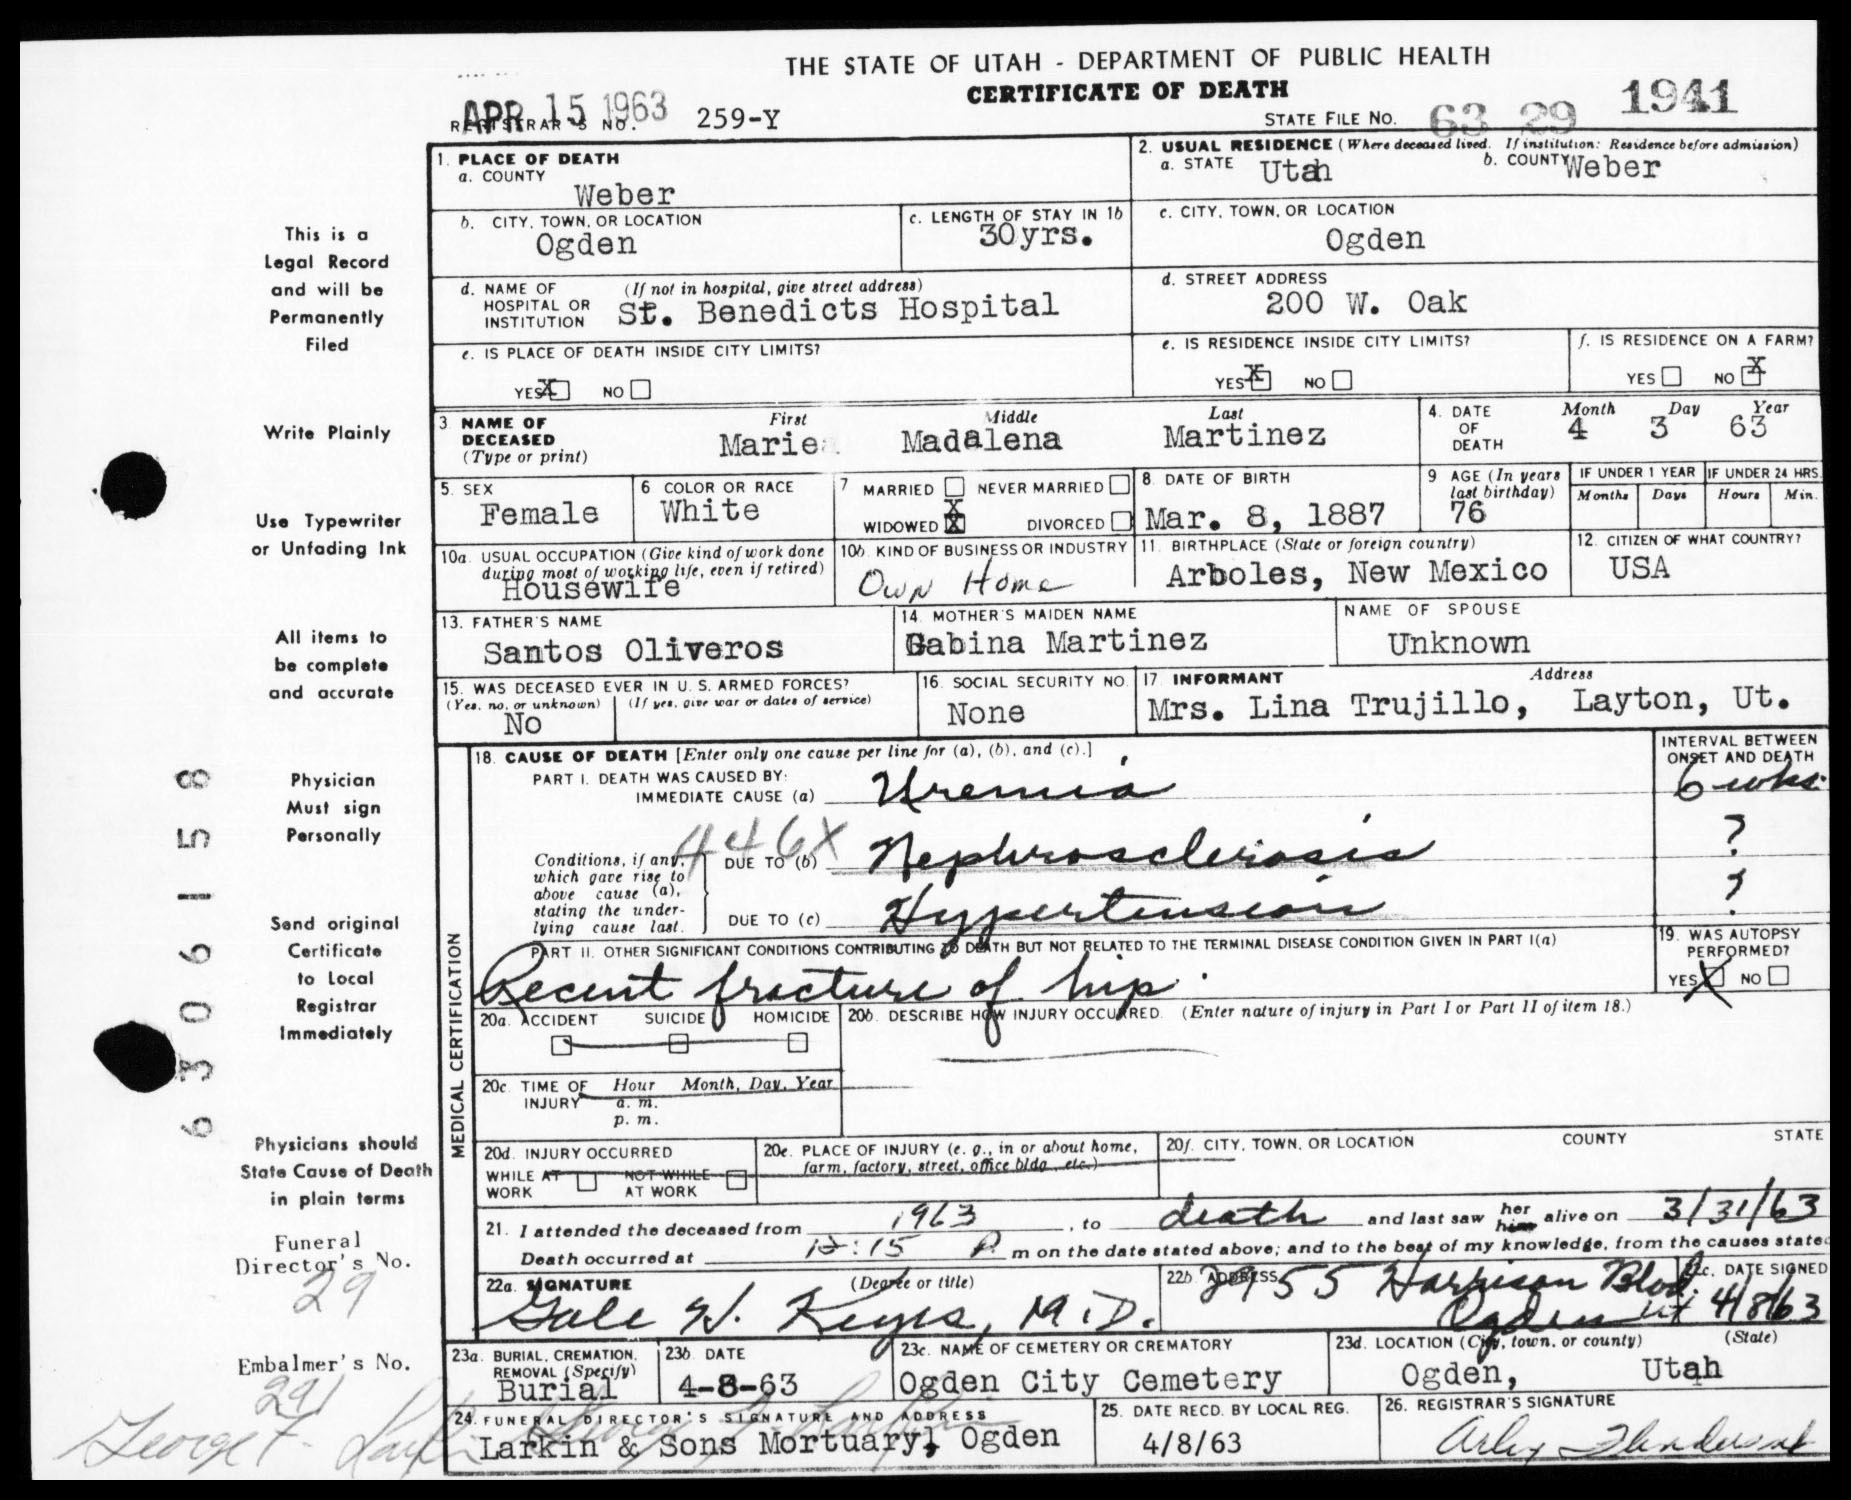 THE STATE OF UTAH - DEPARTMENT OF PUBLIC HEALTH
CERTIFICATE OF DEATH
APR 15 1963
REGISTRAR'S NO. 259-Y
STATE FILE NO. 63 29 1941
1. PLACE OF DEATH
a. COUNTY
Weber
2. USUAL RESIDENCE (Where deceased lived. If institution: Residence before admission)
a. STATE Utah b. COUNTY Weber
b. CITY, TOWN, OR LOCATION
Ogden
c. LENGTH OF STAY IN 1b
30yrs.
c. CITY, TOWN, OR LOCATION
Ogden
d. NAME OF HOSPITAL OR INSTITUTION (If not in hospital, give street address)
St. Benedicts Hospital
d. STREET ADDRESS
200 W. Oak
e. IS PLACE OF DEATH INSIDE CITY LIMITS?
YES X NO
e. IS RESIDENCE INSIDE CITY LIMITS?
YES X NO
f. IS RESIDENCE ON A FARM?
YES NO X
3. NAME OF DECEASED (Type or print)
First Middle Last
Marie Madalena Martinez
4. DATE OF DEATH
Month Day Year
4 3 63
5. SEX
Female
6 COLOR OR RACE
White
7 MARRIED NEVER MARRIED
WIDOWED X DIVORCED
8. DATE OF BIRTH
Mar. 8, 1887
9 AGE (In years last birthday)
76
IF UNDER 1 YEAR
Months Days
IF UNDER 24 HRS.
Hours Min.
10a. USUAL OCCUPATION (Give kind of work done during most of working life, even if retired)
Housewife
10b. KIND OF BUSINESS OR INDUSTRY
Own Home
11. BIRTHPLACE (State or foreign country)
Arboles, New Mexico
12. CITIZEN OF WHAT COUNTRY?
USA
13. FATHER'S NAME
Santos Oliveros
14. MOTHER'S MAIDEN NAME
Gabina Martinez
NAME OF SPOUSE
Unknown
15. WAS DECEASED EVER IN U. S. ARMED FORCES?
(Yes, no, or unknown) (If yes, give war or dates of service)
No
16. SOCIAL SECURITY NO.
None
17. INFORMANT Address
Mrs. Lina Trujillo, Layton, Ut.
MEDICAL CERTIFICATION
18. CAUSE OF DEATH [Enter only one cause per line for (a), (b), and (c).]
INTERVAL BETWEEN ONSET AND DEATH
PART I. DEATH WAS CAUSED BY:
IMMEDIATE CAUSE (a) Uremia 6 wks.
446X
Conditions, if any, which gave rise to above cause (a), stating the underlying cause last.
DUE TO (b) Nephrosclerosis ?
DUE TO (c) Hypertension ?
PART II. OTHER SIGNIFICANT CONDITIONS CONTRIBUTING TO DEATH BUT NOT RELATED TO THE TERMINAL DISEASE CONDITION GIVEN IN PART I(a)
Recent fracture of hip.
19. WAS AUTOPSY PERFORMED?
YES X NO
20a. ACCIDENT SUICIDE HOMICIDE
20b. DESCRIBE HOW INJURY OCCURRED. (Enter nature of injury in Part I or Part II of item 18.)
20c. TIME OF INJURY Hour Month, Day, Year
a. m.
p. m.
20d. INJURY OCCURRED
WHILE AT WORK NOT WHILE AT WORK
20e. PLACE OF INJURY (e. g., in or about home, farm, factory, street, office bldg., etc.)
20f. CITY, TOWN, OR LOCATION COUNTY STATE
21. I attended the deceased from 1963, to death and last saw her him alive on 3/31/63
Death occurred at 12:15 P. m on the date stated above; and to the best of my knowledge, from the causes stated
22a. SIGNATURE (Degree or title)
Gale W. Keyes, M.D.
22b. ADDRESS
3955 Harrison Blvd. Ogden Ut
22c. DATE SIGNED
4/8/63
23a. BURIAL, CREMATION, REMOVAL (Specify)
Burial
23b. DATE
4-8-63
23c. NAME OF CEMETERY OR CREMATORY
Ogden City Cemetery
23d. LOCATION (City, town, or county) (State)
Ogden, Utah
24. FUNERAL DIRECTOR'S SIGNATURE AND ADDRESS
Larkin & Sons Mortuary, Ogden
25. DATE RECD. BY LOCAL REG.
4/8/63
26. REGISTRAR'S SIGNATURE
This is a
Legal Record
and will be
Permanently
Filed
Write Plainly
Use Typewriter
or Unfading Ink
All items to
be complete
and accurate
Physician
Must sign
Personally
Send original
Certificate
to Local
Registrar
Immediately
Physicians should
State Cause of Death
in plain terms
Funeral
Director's No.
29
Embalmer's No.
291
George F. Larkin
63 06158